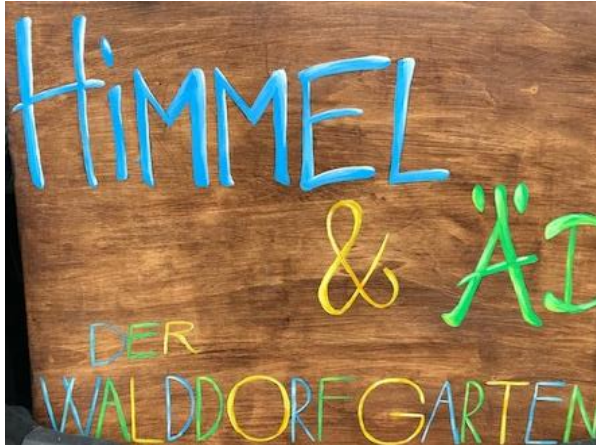 HiMMEL
& ÄD
DER
WALDDORFGARTEN